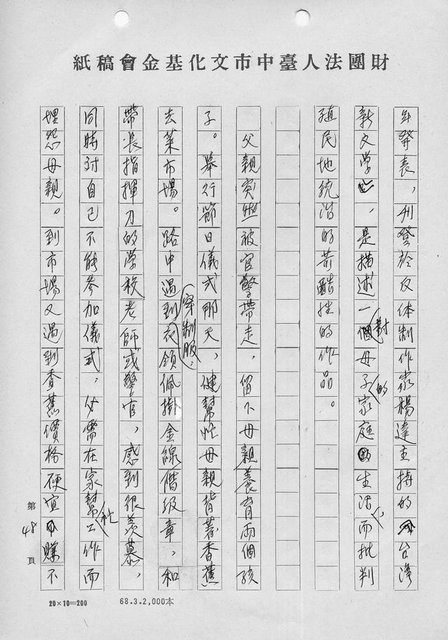 財團法人臺中市文化基金會稿紙
年發表，刊登於反体制作家楊逵主持的台灣
新文学，是描述一個母子家庭的生活，而批判
對
殖民地统治的苦酷性的作品。
父親突然被官警帶走，留下母親養育兩個孩
子。舉行節日儀式那天，健幫忙母親背著香蕉
去菜市場。路中遇到衣領佩掛金線階級章，和
穿制服，
帶長指揮刀的学校老師或警官，感到很羨慕，
同時对自己不能参加儀式，必需在家幫忙工作而
埋怨母親。到市場又遇到香蕉價格便宜賺不
第48頁
20×10=200
68.3.2,000本